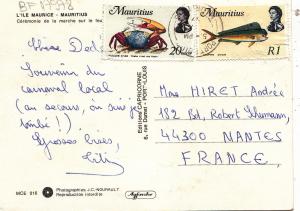 BF 17598
L'ILE MAURICE - MAURITIUS
Cérémonie de la marche sur le feu
Mauritius
20c
Mauritius
R1
Souvenir du
carnaval local
(au secours, où suis je
tombé!)
Grosses bises,
Editions CAPRICORNE
6, rue Dumat - PORT-LOUIS
Mme HIRET Andrée
182 Bd, Robert Schuman,
44300 NANTES
FRANCE
MOE 016
Photographies J.C. NOURAULT
Reproduction interdite